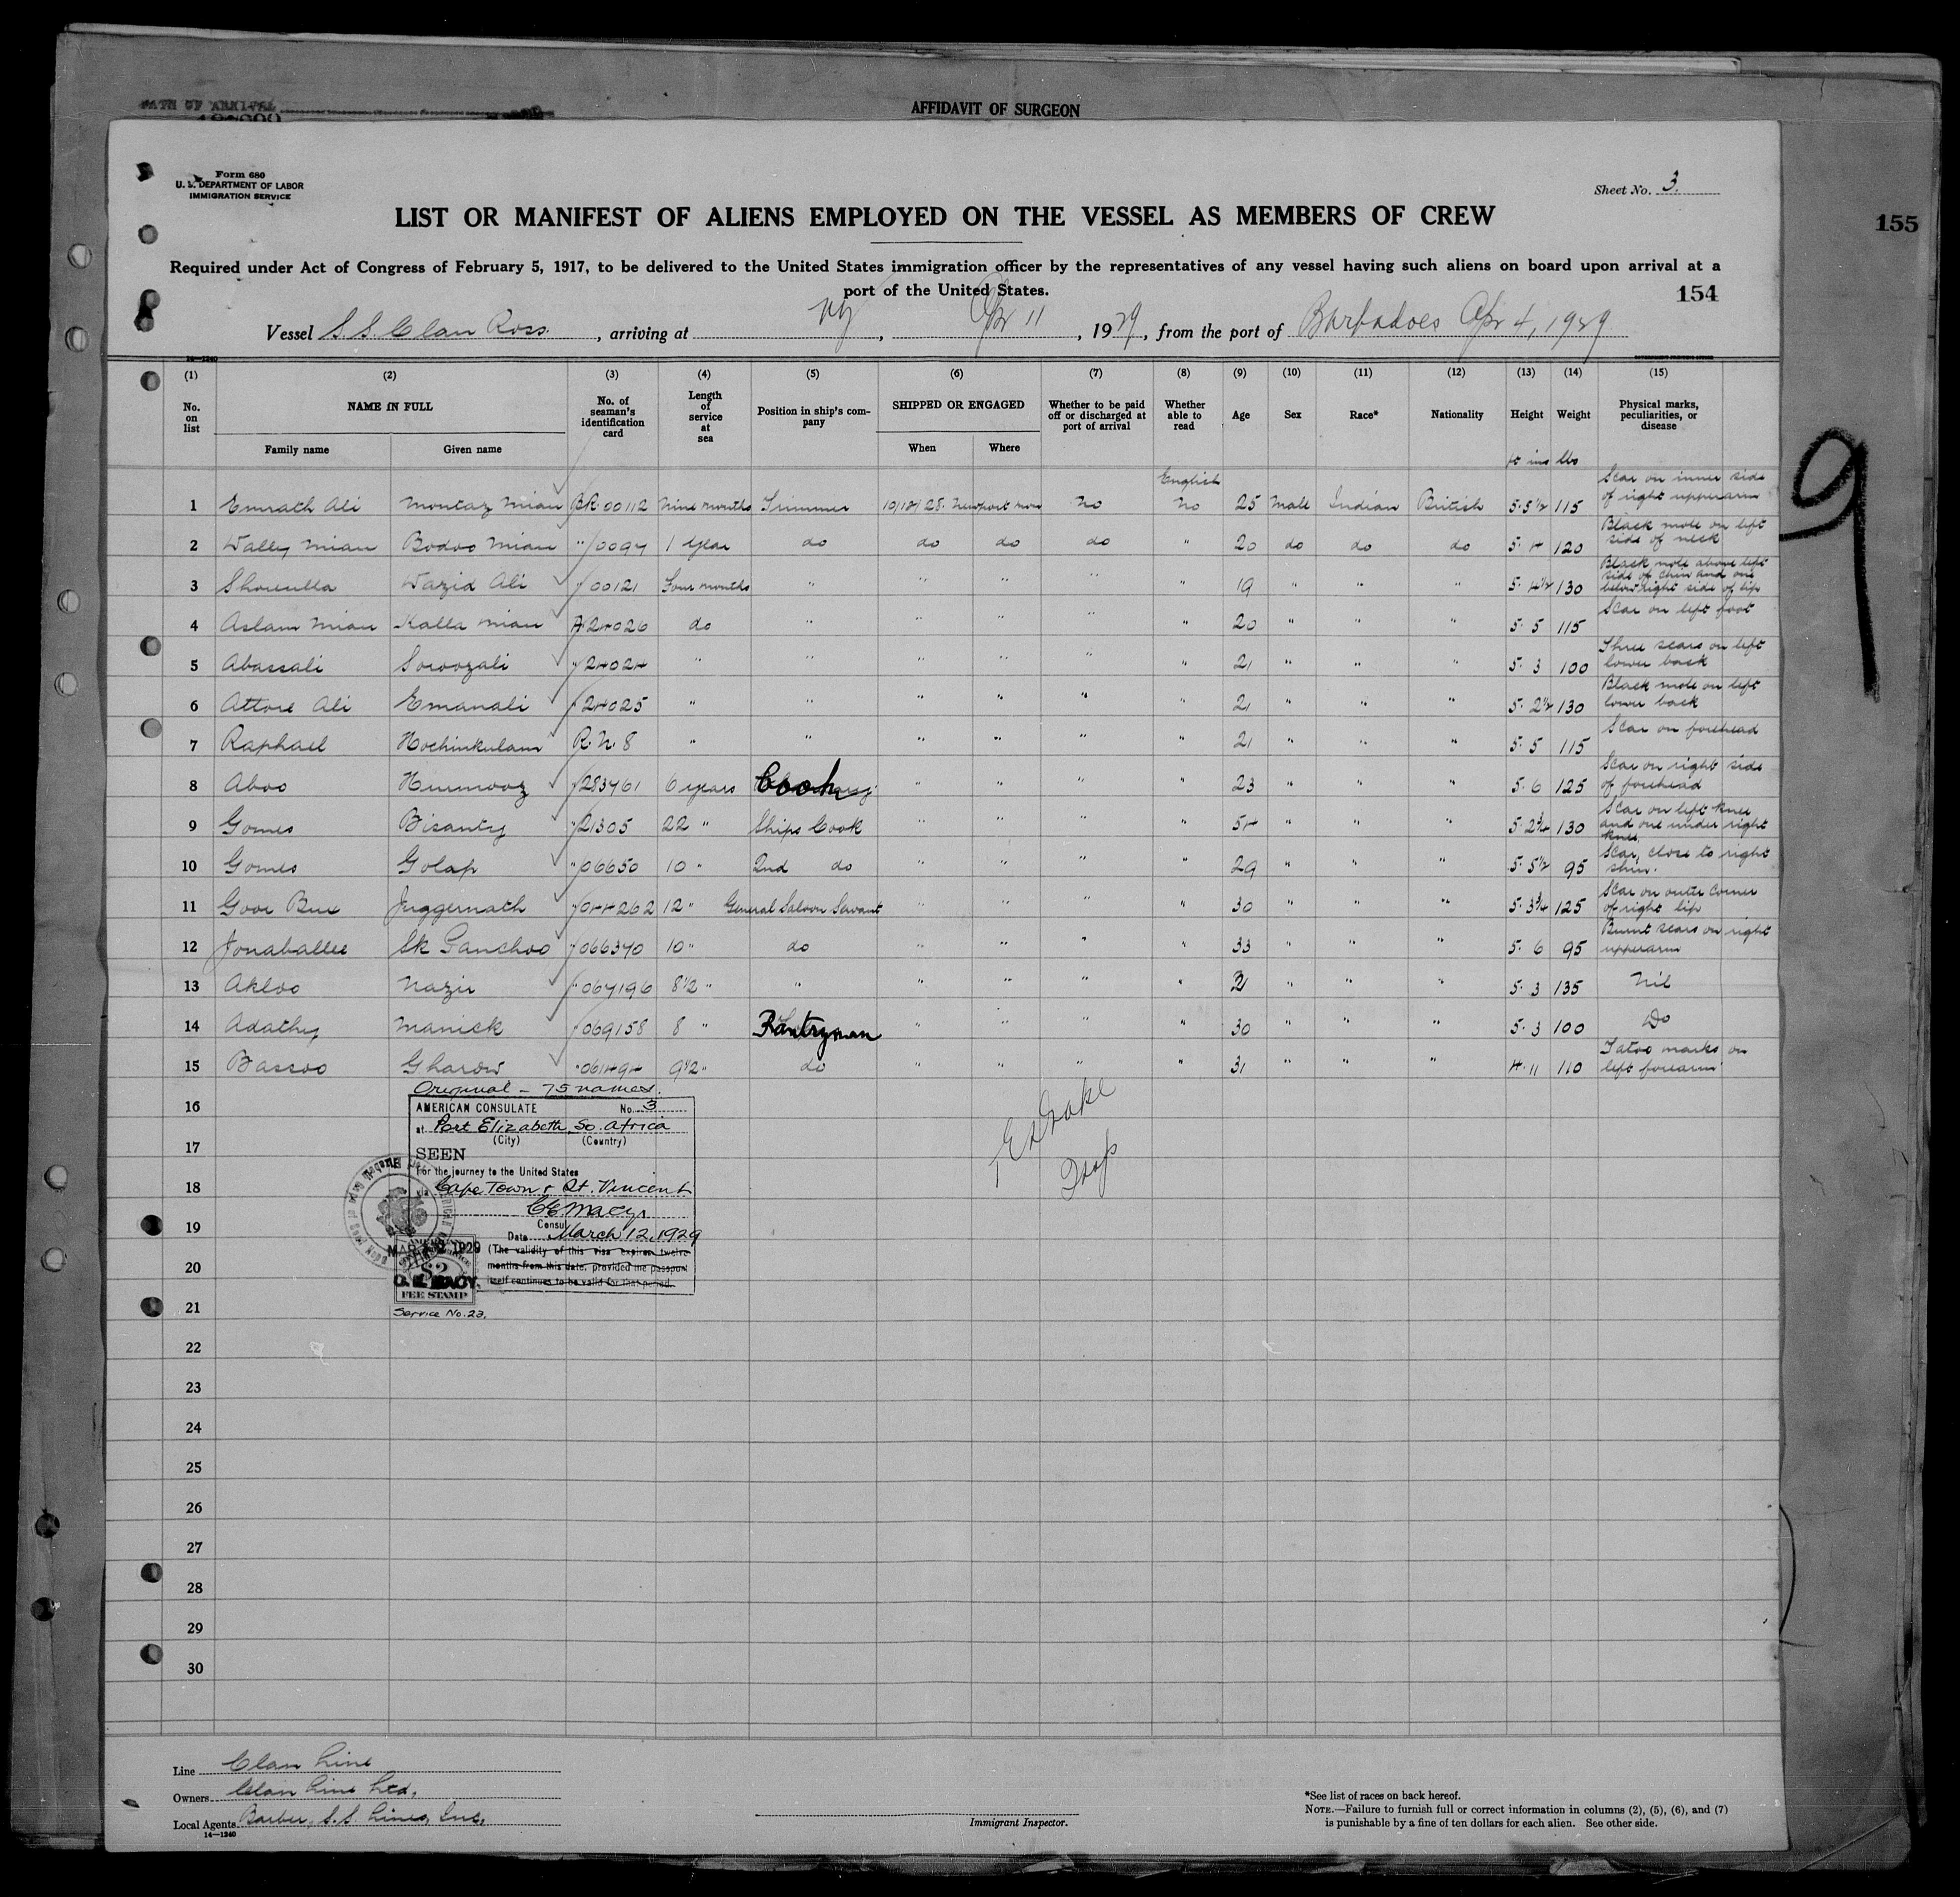 DATE OF ARRIVAL
AFFIDAVIT OF SURGEON
155
Form 680
U. S. DEPARTMENT OF LABOR
IMMIGRATION SERVICE
Sheet No. 3
LIST OR MANIFEST OF ALIENS EMPLOYED ON THE VESSEL AS MEMBERS OF CREW
Required under Act of Congress of February 5, 1917, to be delivered to the United States immigration officer by the representatives of any vessel having such aliens on board upon arrival at a
port of the United States.
154
Vessel S.S. Clan Ross. , arriving at NY , Apr 11 , 1929, from the port of Barbadoes Apr 4, 1929
14—1240
(1) (2) (3) (4) (5) (6) (7) (8) (9) (10) (11) (12) (13) (14) (15)
No. on list NAME IN FULL No. of seaman's identification card Length of service at sea Position in ship's company SHIPPED OR ENGAGED Whether to be paid off or discharged at port of arrival Whether able to read Age Sex Race* Nationality Height Weight Physical marks, peculiarities, or disease
Family name Given name When Where
ft ins lbs
1 Emrath Ali Montaz Mian BR.00112 Nine months Trimmer 10/12/28 Newport Mon No English No 25 Male Indian British 5·5½ 115 Scar on inner side of right upperarm
2 Walley Mian Bodoo Mian "/0097 1 Year do do do do " 20 do do do 5·4 120 Black mole on left side of neck
3 Shorulla Wazid Ali "/00121 Four months " " " " " 19 " " " 5·4½ 130 Black mole above left side of chin and one below right side of lip
4 Aslam Mian Kalla Mian A.24026 do " " " " " 20 " " " 5·5 115 Scar on left foot
5 Abassali Soroozali "24024 " " " " " " 21 " " " 5·3 100 Three scars on left lower back
6 Attore Ali Emanali "24025 " " " " " " 21 " " " 5·2½ 130 Black mole on left lower back
7 Raphael Kochinkulam R.N.8 " " " " " " 21 " " " 5·5 115 Scar on forehead
8 Aboo Hurmooz "283761 6 years Cook " " " " 23 " " " 5·6 125 Scar on right side of forehead
9 Gomes Bisanty "21305 22 " Ships Cook " " " " 54 " " " 5·2¾ 130 Scar on left knee and one under right knee
10 Gomes Golap "06650 10 " 2nd do " " " " 29 " " " 5·5½ 95 Scar, close to right shin.
11 Goor Bux Juggernath "044262 12 " General Saloon Servant " " " " 30 " " " 5·3¾ 125 Scar on outer corner of right lip
12 Jonaballee Sk Panchoo "066370 10 " do " " " " 33 " " " 5·6 95 Burnt scars on right upperarm
13 Akloo Nazir "067196 8½ " " " " " " 21 " " " 5·3 135 Nil
14 Adathy Manick "069158 8 " Pantryman " " " " 30 " " " 5·3 100 Do
15 Bassoo Gharow "061494 9½ " do " " " " 31 " " " 4·11 110 Tatoo marks on left forearm
Original - 75 names.
16
AMERICAN CONSULATE No. 3
at Port Elizabeth, So. Africa
(City) (Country)
17
SEEN
For the journey to the United States
18
via Cape Town & St. Vincent
C E Macy
19
Consul
Date March 12, 1929
MAR 12 1929
(The validity of this visa expires twelve
20
months from this date, provided the passport
itself continues to be valid for that period.
$2
C. E. MACY.
FEE STAMP
21
Service No. 23.
22
23
24
25
26
27
28
29
30
9
Line Clan Line
Owners Clan Line Ltd.
Local Agents Barber S.S. Lines, Inc.
14—1240
Immigrant Inspector.
*See list of races on back hereof.
NOTE.—Failure to furnish full or correct information in columns (2), (5), (6), and (7)
is punishable by a fine of ten dollars for each alien. See other side.